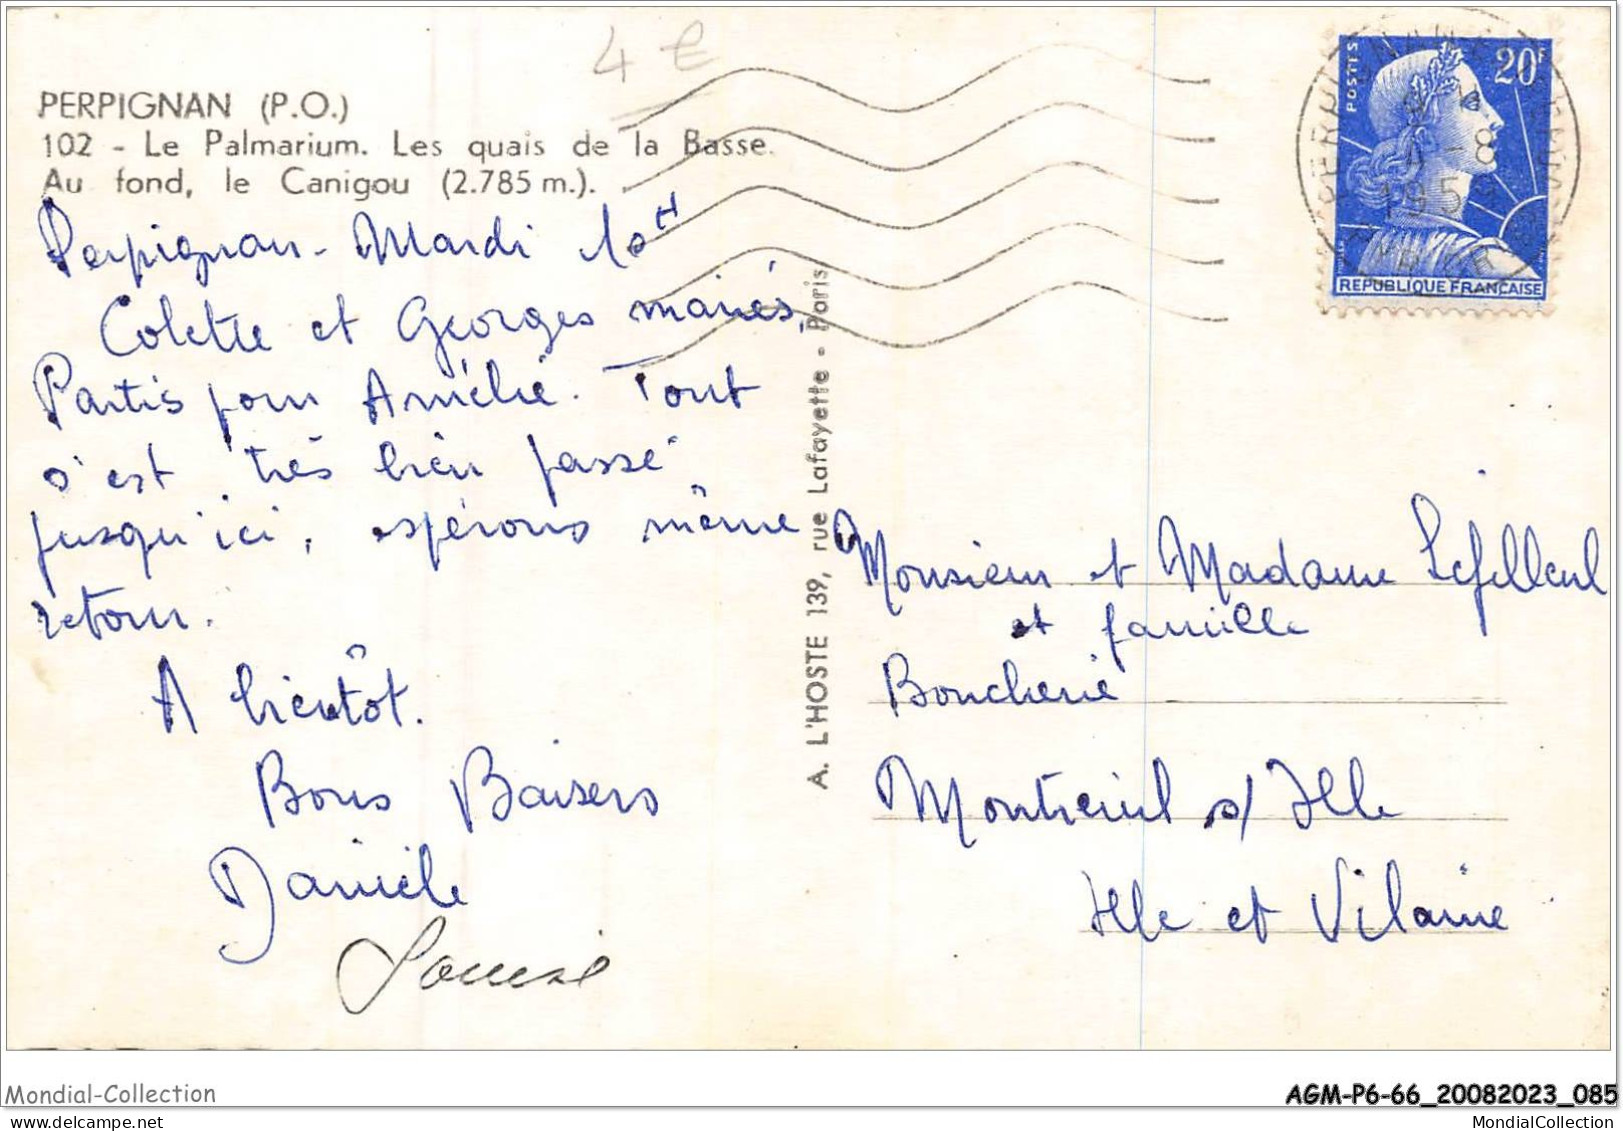 4 €
PERPIGNAN (P.O.)
102 - Le Palmarium. Les quais de la Basse.
Au fond, le Canigou (2.785 m.).
Perpignan - Mardi 10H
Colette et Georges mariés,
Partis pour Amélie. Tout
s'est très bien passé
jusqu'ici, espérons même
retour.
A bientôt.
Bons Baisers
Danièle
Louise
A. L'HOSTE 139, rue Lafayette - Paris
POSTES
20F
REPUBLIQUE FRANÇAISE
4 - 8
Monsieur et Madame Lefilleul
et famille
Boucherie
Montreuil s/ Ille
Ille et Vilaine
Mondial-Collection
AGM-P6-66_20082023_085
MondialCollection